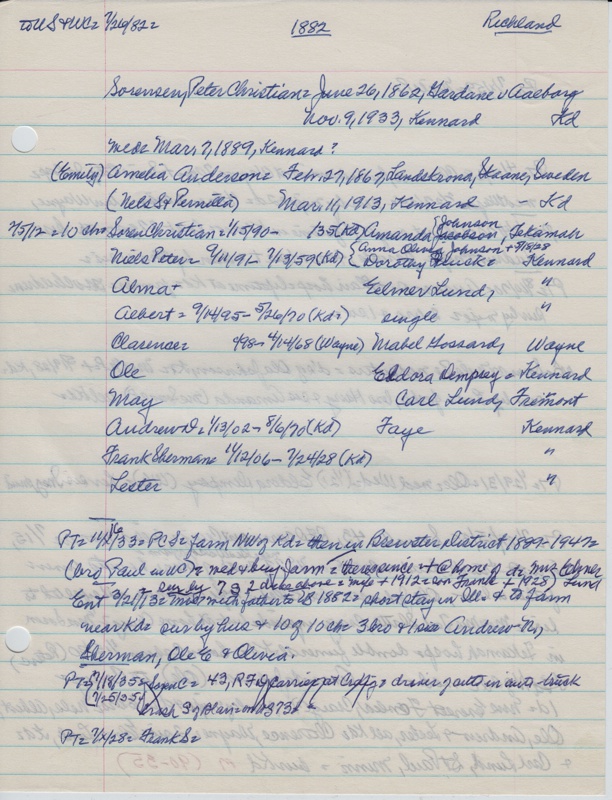 to US & WC= 7/26/82= 1882 Richland
Sorensen, Peter Christian= June 26, 1862, Gardane v Aalborg
Nov. 9, 1933, Kennard Kd
med= Mar. 7, 1889, Kennard?
(Emily) Amelia Anderson= Febr. 27, 1867, Landskrona, Skaane, Sweden
(Nels S & Pernilla) Mar. 11, 1913, Kennard - Kd
7/5/12=10 chn Soren Christian= 1/15/90- '35 (Kd) Amanda Johnson Jacobson, Tekamah
Niels Peter= 9/11/91- 7/13/59 (Kd) { Anna Olivia Johnson + 9/5/28 Dorothy Kennard
Alma + Eelmer Lund, "
Albert= 9/14/95- 5/26/70 (Kd=) single "
Clarence= 4/98- 4/14/68 (Wayne) Mabel Gossard, Wayne
Ole Eldora Dempsey= Kennard
May Carl Lund, Fremont
Andrew D= 1/13/02- 5/6/70 (Kd) Faye Kennard
Frank Sherman= 11/12/06- 7/24/28 (Kd) "
Lester "
PT= 11/16/33= PCS= farm NW of Kd= then in Brewster District, 1889-
(bro Paul in WO)= med & buy farm= thenceance + @ home of da Mrs Eelmer Lund
= sur by 7 s 2 das above = wife + 1912= son Frank + 1928)
Ent 3/21/13= Amer with father to US 1882= short stay in Ill. & to farm
near Kd= sur by hus & 10 of 10 ch= 3 bro & 1 sis Andrew N.,
Sherman, Ole E & Olivia.
PT= 4/18/35= Soren C= 43, RFD carrier at = driver of auto in auto-truck
(7/25/35) crash S of Blair on #73=
PT= 7/ /28= Frank S=